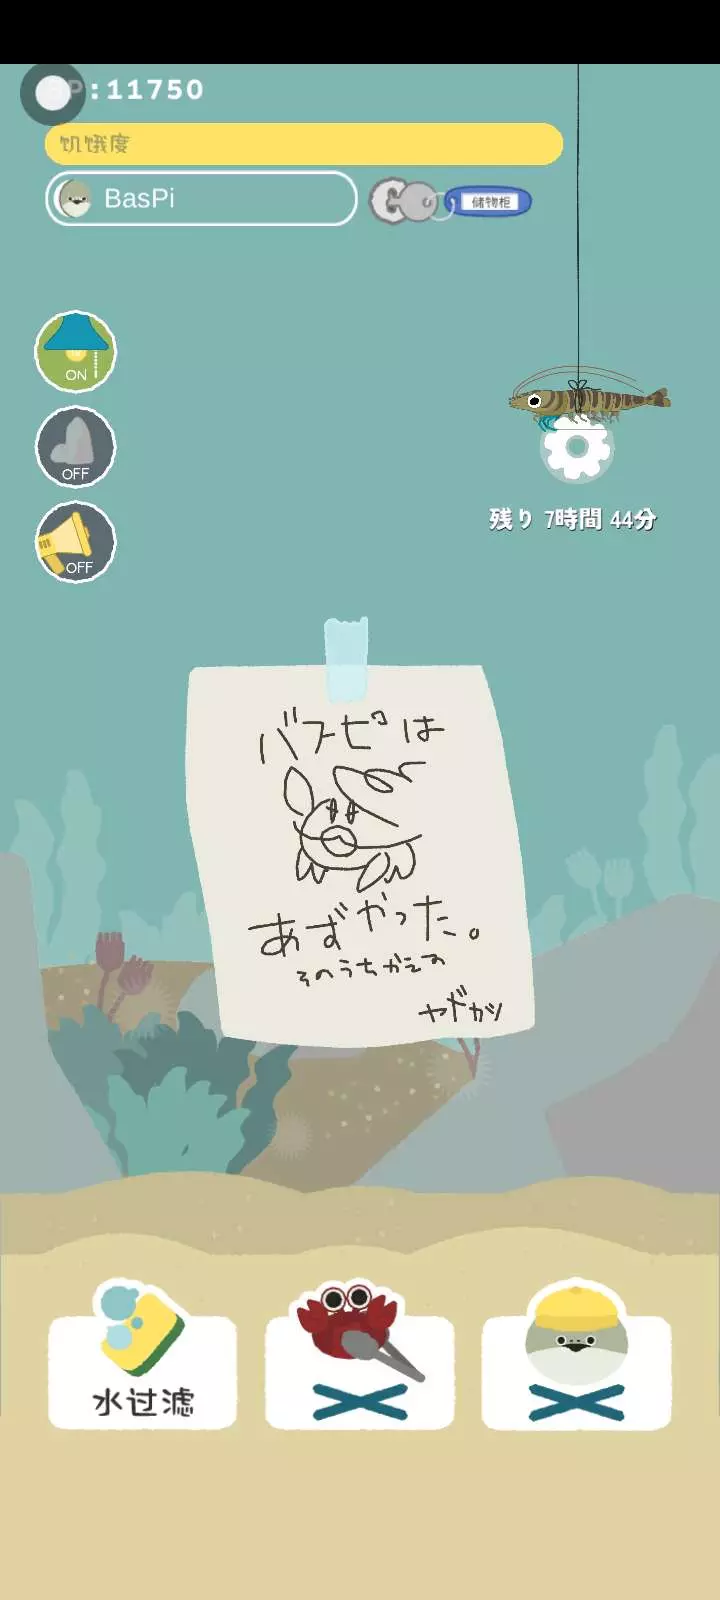 P:11750
饥饿度
BasPi
储物柜
ON
OFF
残り 7時間 44分
OFF
バスピは
あずかった。
そのうちかえる
ヤドカリ
水过滤